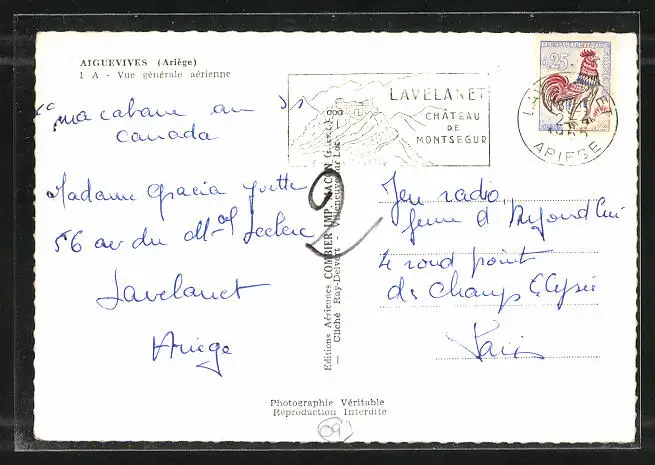 AIGUEVIVES (Ariège)
1 A - Vue générale aérienne
"ma cabane au
canada
Madame Gracia Yvette
56 av du Mal Leclerc
Lavelanet
Ariege
LAVELANET
CHÂTEAU
DE
MONTSEGUR
0,25
ARIEGE
Editions Aériennes COMBIER IMP. MACON
— Cliché Ray-Delvert - Villeneuve sur Lot
2
Jeu radio
femme d Aujourd'hui
4 rond point
des Champs Elysée
Paris
Photographie Véritable
Reproduction Interdite
09